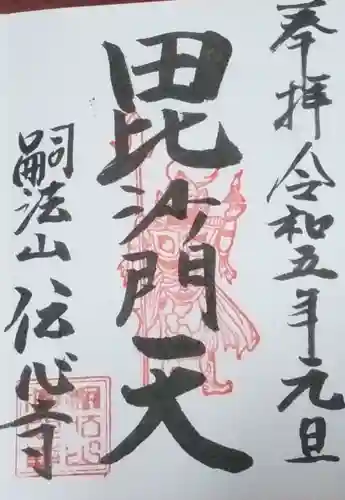 奉拝 令和五年元旦
毘沙門天
嗣法山 伝心寺